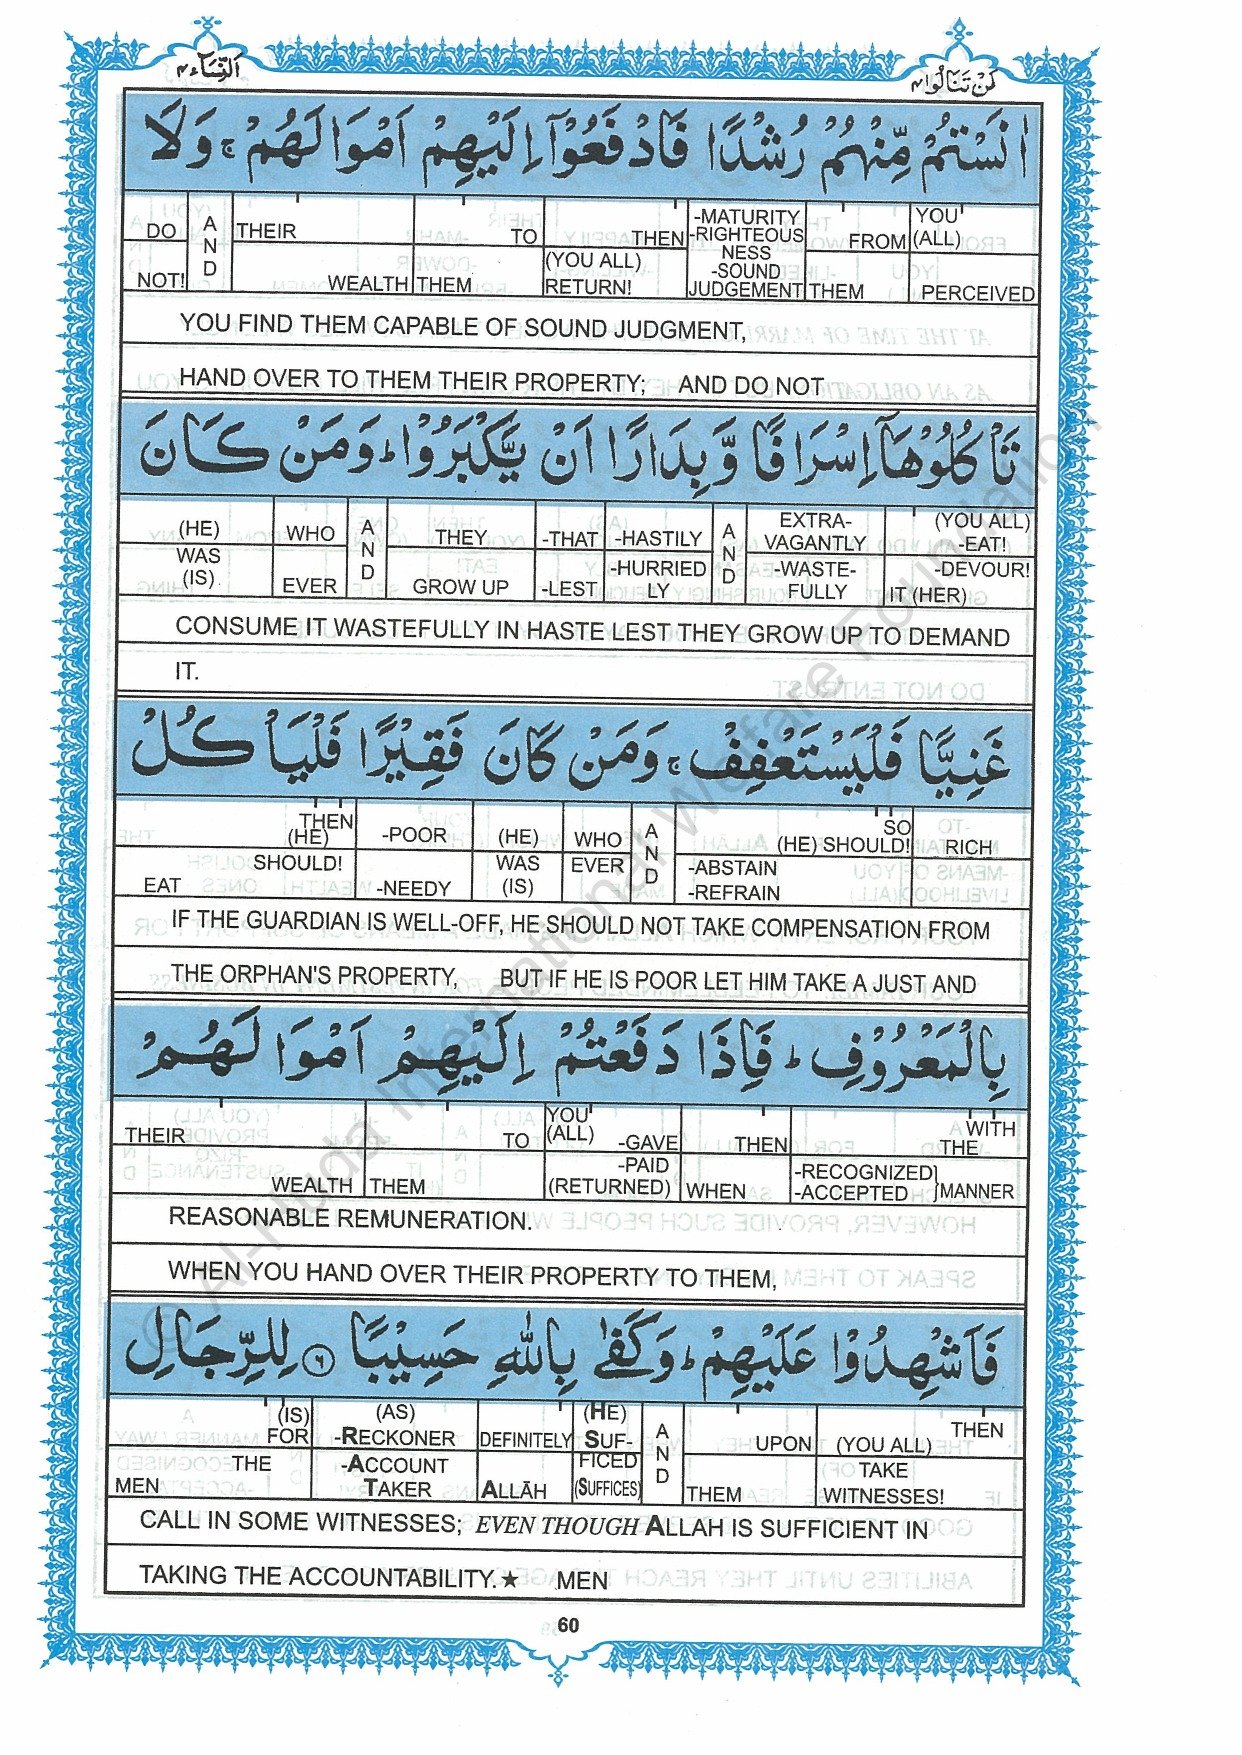 النِّسَآء ٤
لَنْ تَنَالُوا ٤
اٰنَسْتُمْ مِّنْهُمْ رُشْدًا فَادْفَعُوْۤا اِلَيْهِمْ اَمْوَالَهُمْ ۚ وَلَا
DO NOT! AND THEIR WEALTH TO THEM THEN (YOU ALL) RETURN! -MATURITY -RIGHTEOUS NESS -SOUND JUDGEMENT FROM THEM YOU (ALL) PERCEIVED
YOU FIND THEM CAPABLE OF SOUND JUDGMENT,
HAND OVER TO THEM THEIR PROPERTY; AND DO NOT
تَاْكُلُوْهَاۤ اِسْرَافًا وَّ بِدَارًا اَنْ يَّكْبَرُوْا ؕ وَمَنْ كَانَ
(HE) WAS (IS). WHO EVER AND THEY GROW UP -THAT -LEST -HASTILY -HURRIED LY AND EXTRA-VAGANTLY -WASTE-FULLY (YOU ALL) -EAT! -DEVOUR! IT (HER)
CONSUME IT WASTEFULLY IN HASTE LEST THEY GROW UP TO DEMAND
IT.
غَنِيًّا فَلْيَسْتَعْفِفْ ۚ وَمَنْ كَانَ فَقِيْرًا فَلْيَاْكُلْ
THEN (HE) SHOULD! EAT -POOR -NEEDY (HE) WAS (IS) WHO EVER AND SO (HE) SHOULD! -ABSTAIN -REFRAIN RICH
IF THE GUARDIAN IS WELL-OFF, HE SHOULD NOT TAKE COMPENSATION FROM
THE ORPHAN'S PROPERTY, BUT IF HE IS POOR LET HIM TAKE A JUST AND
بِالْمَعْرُوْفِ ؕ فَاِذَا دَفَعْتُمْ اِلَيْهِمْ اَمْوَالَهُمْ
THEIR WEALTH TO THEM YOU (ALL) -GAVE -PAID (RETURNED) THEN WHEN WITH THE -RECOGNIZED -ACCEPTED MANNER
REASONABLE REMUNERATION.
WHEN YOU HAND OVER THEIR PROPERTY TO THEM,
فَاَشْهِدُوْا عَلَيْهِمْ ؕ وَكَفٰى بِاللّٰهِ حَسِيْبًا ٦ لِلرِّجَالِ
(IS) FOR THE MEN (AS) -RECKONER -ACCOUNT TAKER DEFINITELY ALLĀH (HE) SUF-FICED (SUFFICES) AND UPON THEM THEN (YOU ALL) TAKE WITNESSES!
CALL IN SOME WITNESSES; EVEN THOUGH ALLAH IS SUFFICIENT IN
TAKING THE ACCOUNTABILITY.★ MEN
60
© Al-Huda International Welfare Foundation